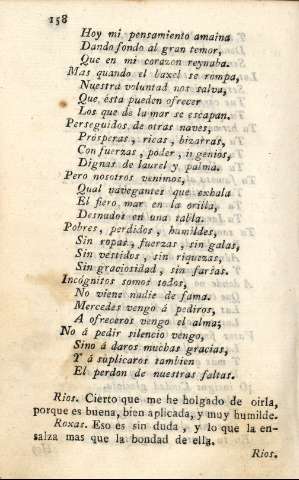 158
Hoy mi pensamiento amaina
Dando fondo al gran temor,
Que en mi corazon reynaba.
Mas quando el baxel se rompa,
Nuestra voluntad nos salva,
Que, ésta pueden ofrecer
Los que de la mar se escapan.
Perseguidos de otras naves,
Prósperas, ricas, bizarras,
Con fuerzas, poder, ingénios,
Dignas de laurel y palma.
Pero nosotros venimos,
Qual navegantes que exhala
El fiero mar en la orilla,
Desnudos en una tabla.
Pobres, perdidos, humildes,
Sin ropas, fuerzas, sin galas,
Sin vestidos, sin riquezas,
Sin graciosidad, sin farsas.
Incógnitos somos todos,
No viene nadie de fama.
Mercedes vengo á pediros,
A ofreceros vengo el alma;
No á pedir silencio vengo,
Sino á daros muchas gracias,
Y á suplicaros tambien
El perdon de nuestras faltas.
Rios. Cierto que me he holgado de oirla,
porque es buena, bien aplicada, y muy humilde.
Roxas. Eso es sin duda, y lo que la en-
salza mas que la bondad de ella.
Rios.